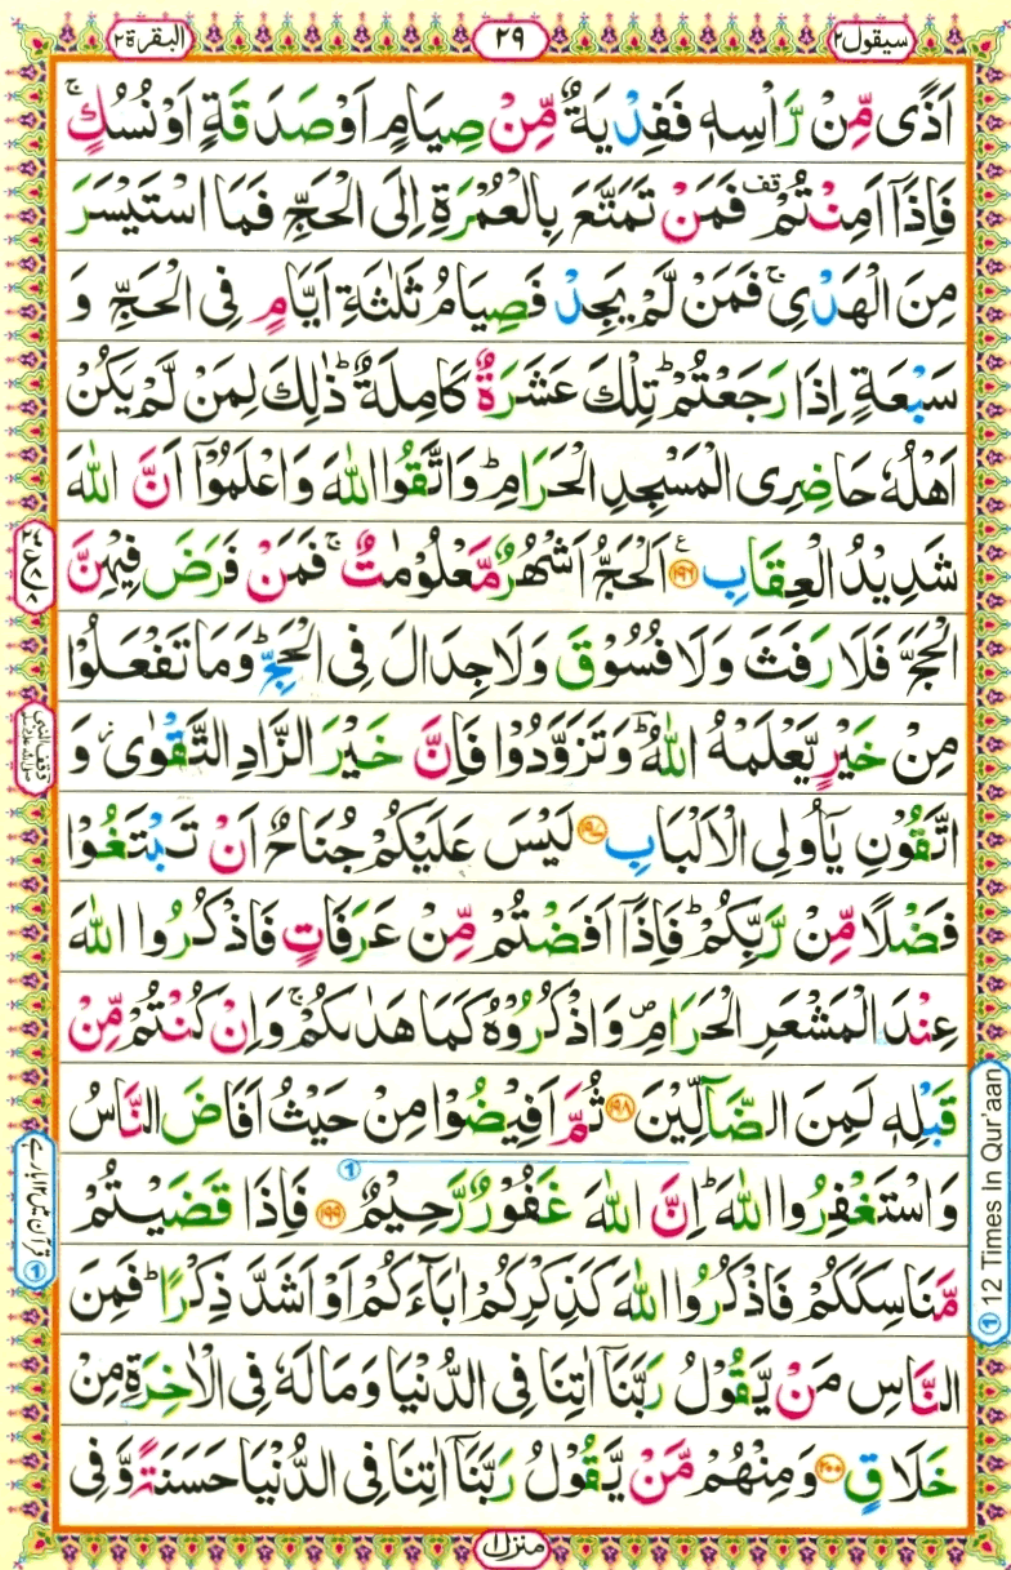 سيقول ٢
٢٩
البقرة ٢
اَذًى مِّنْ رَّاْسِهٖ فَفِدْيَةٌ مِّنْ صِيَامٍ اَوْ صَدَقَةٍ اَوْ نُسُكٍ ۚ
فَاِذَاۤ اَمِنْتُمْ ۥقف فَمَنْ تَمَتَّعَ بِالْعُمْرَةِ اِلَى الْحَجِّ فَمَا اسْتَيْسَرَ
مِنَ الْهَدْىِ ۚ فَمَنْ لَّمْ يَجِدْ فَصِيَامُ ثَلٰثَةِ اَيَّامٍ فِى الْحَجِّ وَ
سَبْعَةٍ اِذَا رَجَعْتُمْ ؕ تِلْكَ عَشَرَةٌ كَامِلَةٌ ؕ ذٰلِكَ لِمَنْ لَّمْ يَكُنْ
اَهْلُهٗ حَاضِرِى الْمَسْجِدِ الْحَرَامِ ؕ وَاتَّقُوا اللّٰهَ وَاعْلَمُوْۤا اَنَّ اللّٰهَ
شَدِيْدُ الْعِقَابِ ۧ ﴿۱۹۶﴾ اَلْحَجُّ اَشْهُرٌ مَّعْلُوْمٰتٌ ۚ فَمَنْ فَرَضَ فِيْهِنَّ
الْحَجَّ فَلَا رَفَثَ وَلَا فُسُوْقَ وَلَا جِدَالَ فِى الْحَجِّ ؕ وَمَا تَفْعَلُوْا
مِنْ خَيْرٍ يَّعْلَمْهُ اللّٰهُ ؕ وَتَزَوَّدُوْا فَاِنَّ خَيْرَ الزَّادِ التَّقْوٰى ز وَ
اتَّقُوْنِ يٰۤاُولِى الْاَلْبَابِ ﴿۱۹۷﴾ لَيْسَ عَلَيْكُمْ جُنَاحٌ اَنْ تَبْتَغُوْا
فَضْلًا مِّنْ رَّبِّكُمْ ؕ فَاِذَاۤ اَفَضْتُمْ مِّنْ عَرَفَاتٍ فَاذْكُرُوا اللّٰهَ
عِنْدَ الْمَشْعَرِ الْحَرَامِ ص وَاذْكُرُوْهُ كَمَا هَدٰىكُمْ ۚ وَاِنْ كُنْتُمْ مِّنْ
قَبْلِهٖ لَمِنَ الضَّآلِّيْنَ ﴿۱۹۸﴾ ثُمَّ اَفِيْضُوْا مِنْ حَيْثُ اَفَاضَ النَّاسُ
وَاسْتَغْفِرُوا اللّٰهَ ؕ اِنَّ اللّٰهَ غَفُوْرٌ رَّحِيْمٌ ① ﴿۱۹۹﴾ فَاِذَا قَضَيْتُمْ
مَّنَاسِكَكُمْ فَاذْكُرُوا اللّٰهَ كَذِكْرِكُمْ اٰبَآءَكُمْ اَوْ اَشَدَّ ذِكْرًا ؕ فَمِنَ
النَّاسِ مَنْ يَّقُوْلُ رَبَّنَاۤ اٰتِنَا فِى الدُّنْيَا وَمَا لَهٗ فِى الْاٰخِرَةِ مِنْ
خَلَاقٍ ﴿۲۰۰﴾ وَمِنْهُمْ مَّنْ يَّقُوْلُ رَبَّنَاۤ اٰتِنَا فِى الدُّنْيَا حَسَنَةً وَّفِى
منزل ١
① 12 Times In Qur'aan